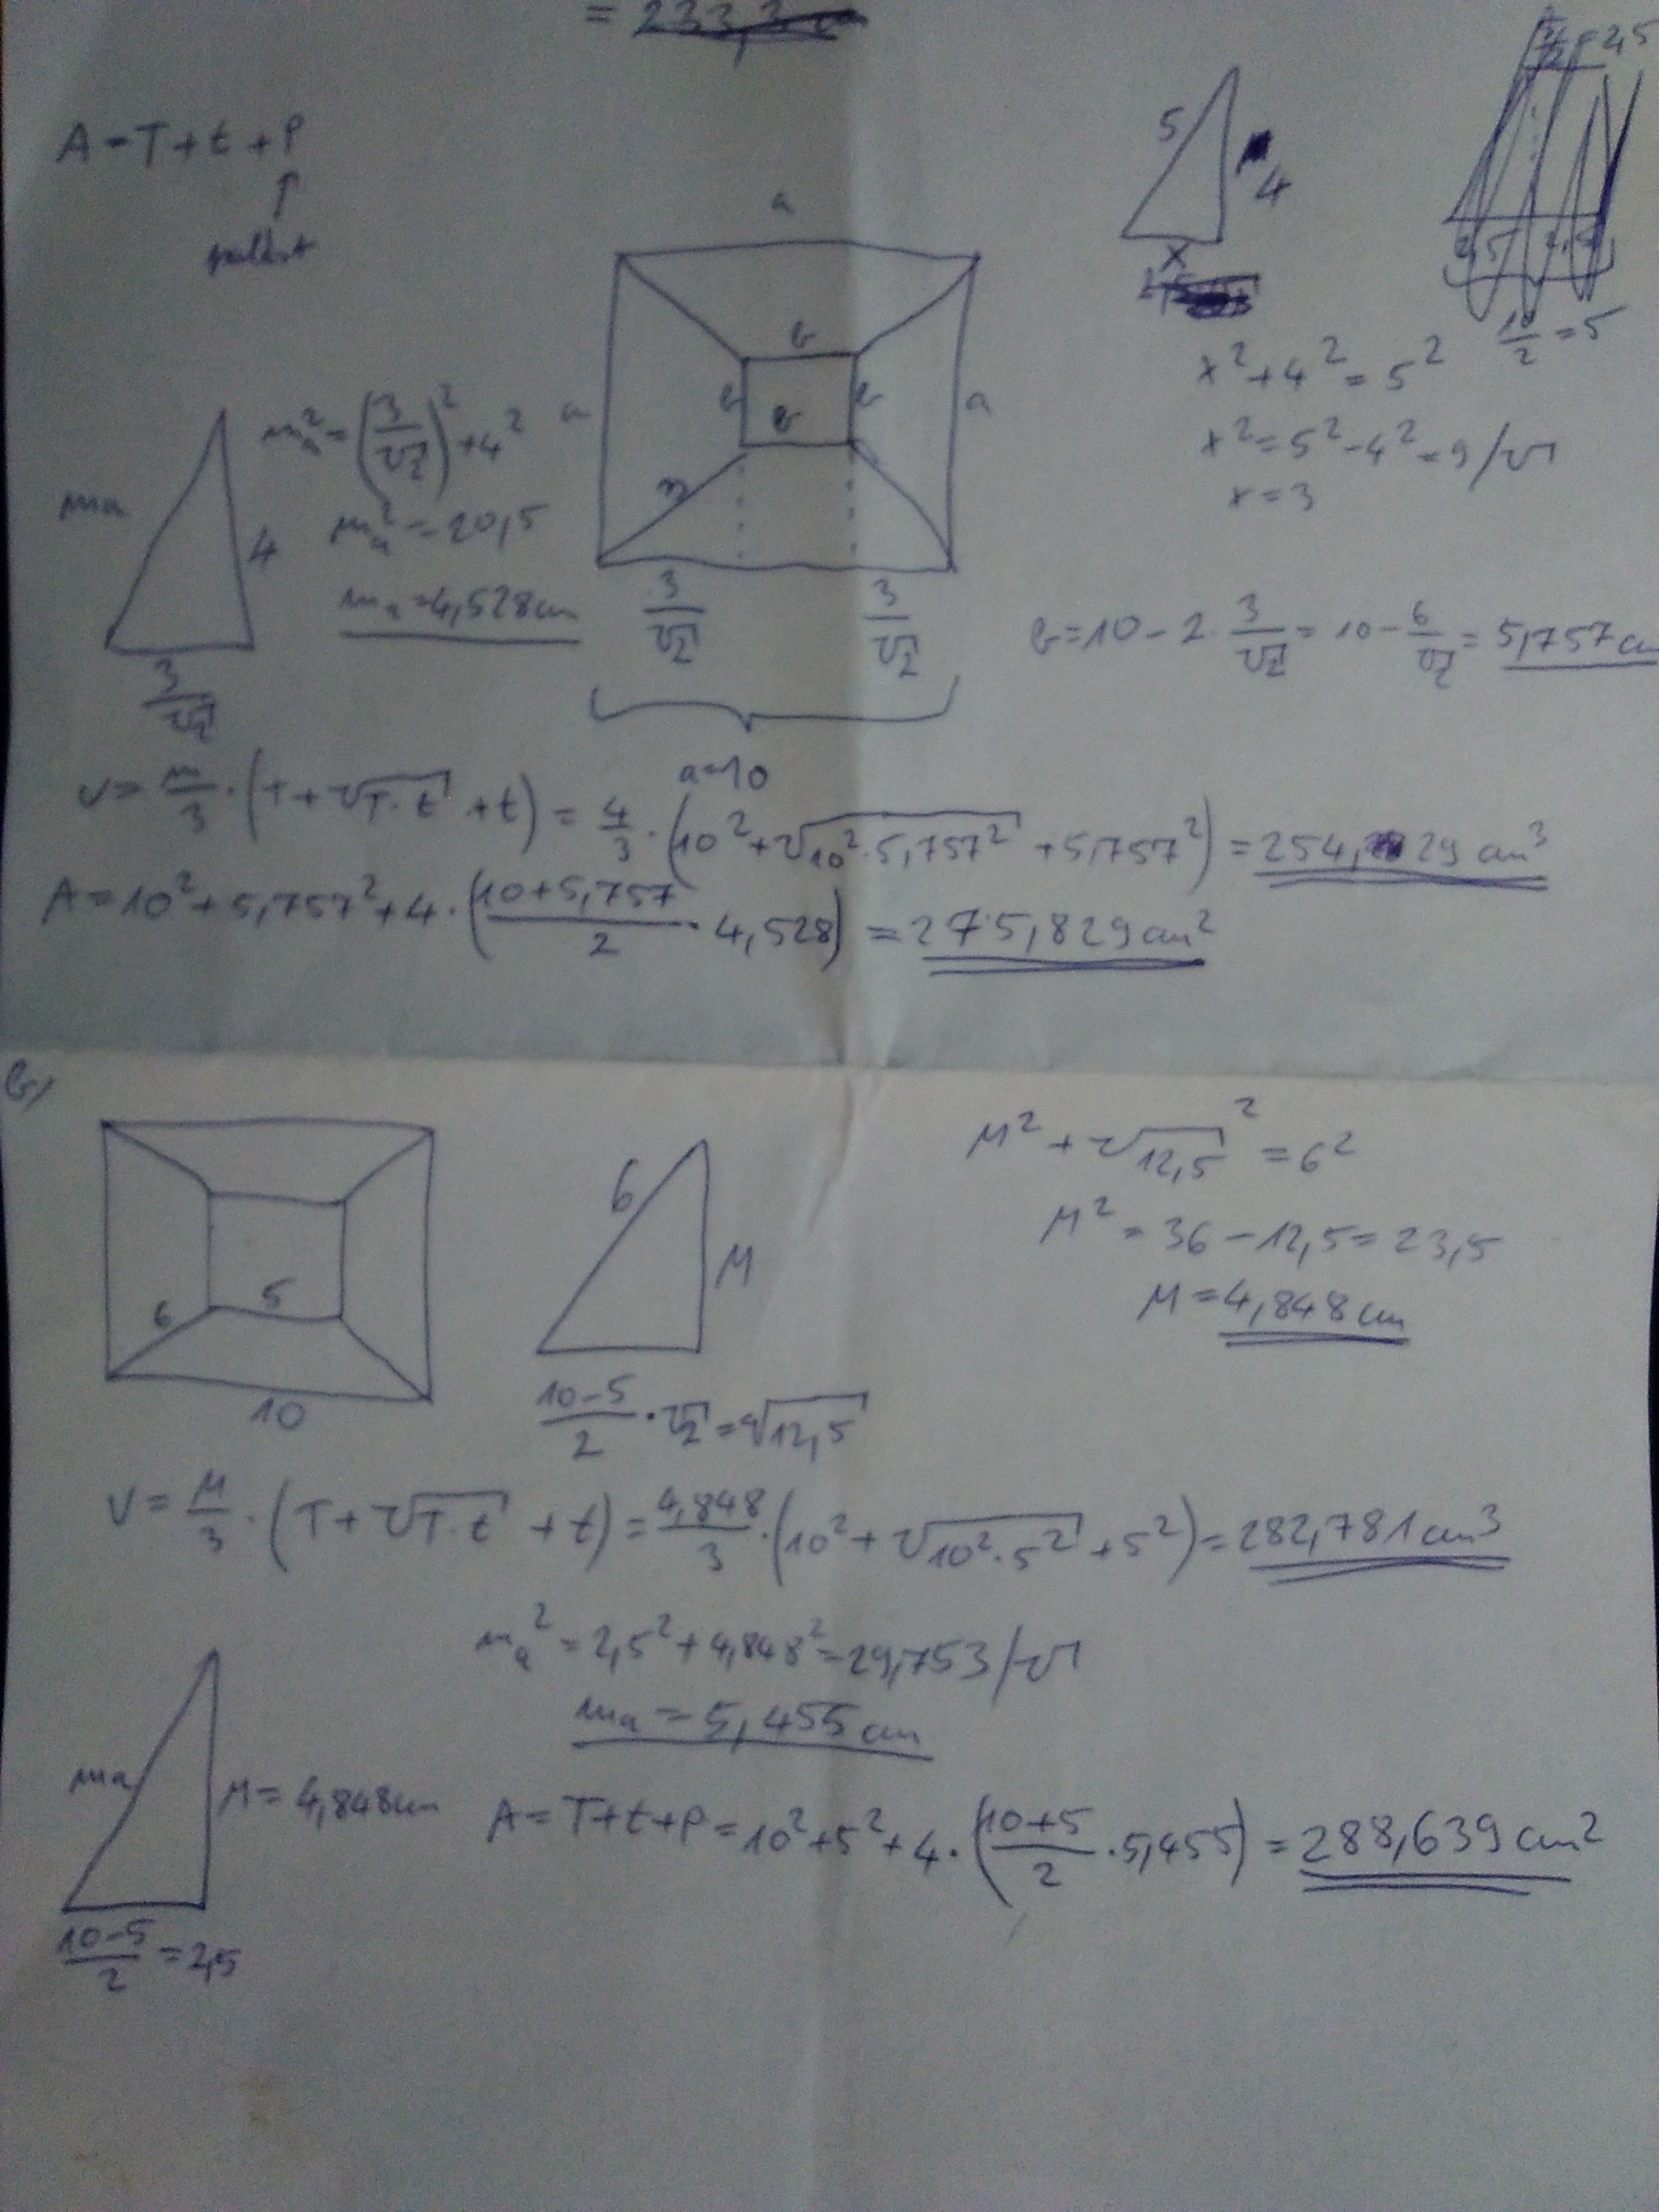 = 233,3 cm
A = T + t + P
↑
palást
5
4
x
x² + 4² = 5²
x² = 5² - 4² = 9 /√
x = 3
10/2 = 5
a
a
a
b
b
b
b
ma
4
3/√2
ma² = (3/√2)² + 4²
ma² = 20,5
ma = 4,528 cm
3/√2
3/√2
a=10
b = 10 - 2 · 3/√2 = 10 - 6/√2 = 5,757 cm
V = m/3 · (T + √T·t + t) = 4/3 · (10² + √10²·5,757² + 5,757²) = 254,29 cm³
A = 10² + 5,757² + 4 · (10+5,757/2 · 4,528) = 275,829 cm²
b,
6
5
10
6
M
10-5/2 · √2 = √12,5
M² + √12,5² = 6²
M² = 36 - 12,5 = 23,5
M = 4,848 cm
V = M/3 · (T + √T·t + t) = 4,848/3 · (10² + √10²·5² + 5²) = 282,781 cm³
ma² = 2,5² + 4,848² = 29,753 /√
ma = 5,455 cm
ma
M = 4,848 cm
10-5/2 = 2,5
A = T + t + P = 10² + 5² + 4 · (10+5/2 · 5,455) = 288,639 cm²